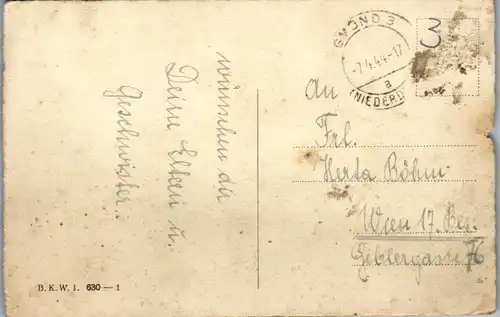 wünschen dir
Deine Eltern u.
Geschwister.
GMÜND 3
-7.4.44-17
a
(NIEDERD
3
An
Frl.
Herta Böhm
Wien 17. Bez.
Giblergasse 76
B. K. W. I. 630—1